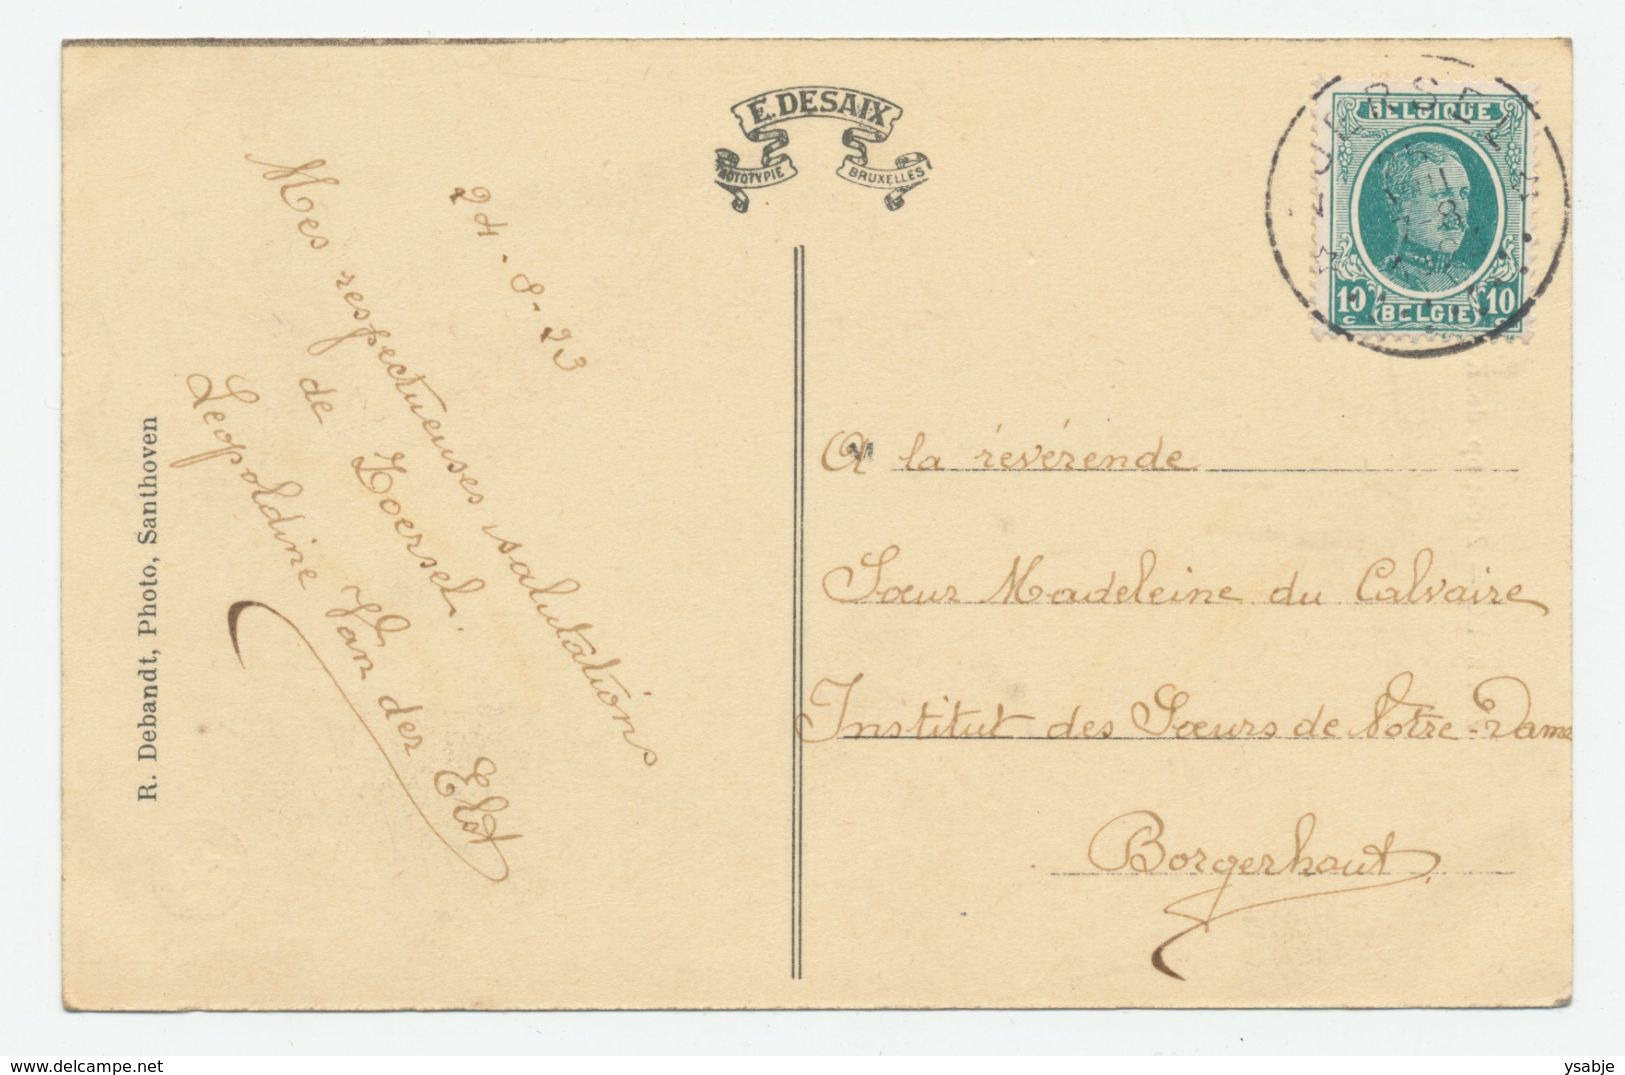 E. DESAIX
PHOTOTYPIE
BRUXELLES
BELGIQUE
10 c
BELGIË
10 c
24-8-23
Mes respectueuses salutations
de Zoersel.
Leopoldine Van der Elst
R. Debandt, Photo, Santhoven
A la révérende
Sœur Madeleine du Calvaire
Institut des Sœurs de Notre-Dame
Borgerhout
ysabje